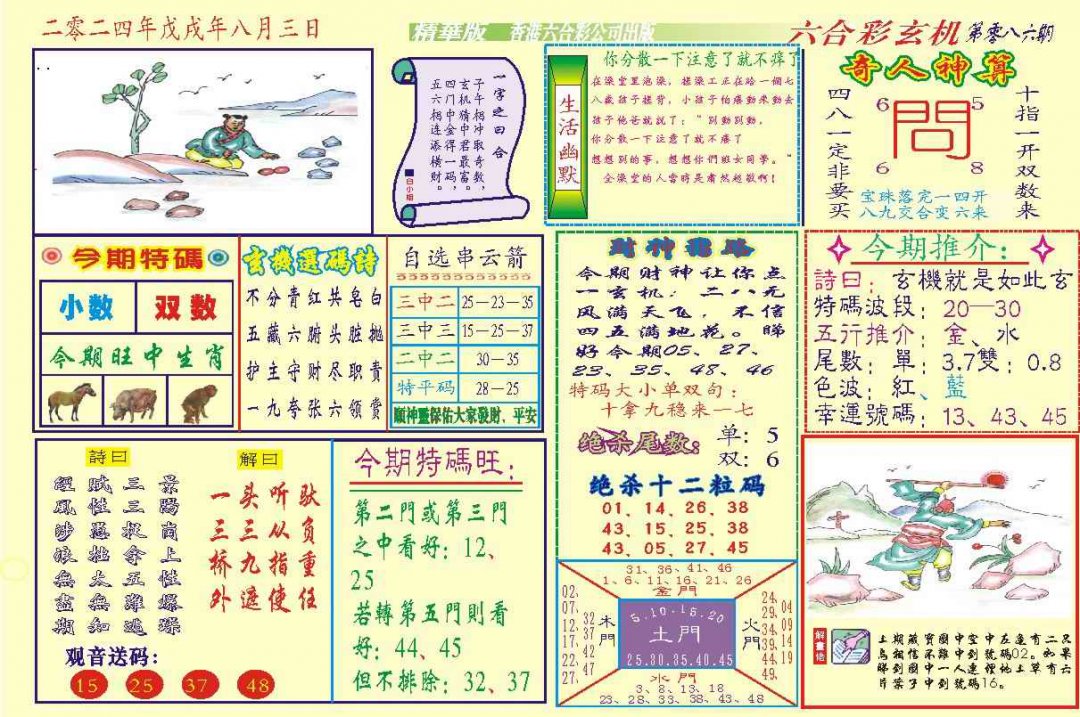 二零二四年戊戌年八月三日
精華版 香港六合彩公司出版
六合彩玄机 第零八六期
一字之曰合
子午相冲取奇数,
玄机中情君最富,
四门相金得一码,
五六相连添横财。
白小姐
生活幽默
你分散一下注意了就不痒了
在澡堂里泡澡, 搓澡工正在给一個七
八歲孩子搓背, 小孩子怕癢動來動去
孩子他爸就説了: "别動别動,
你分散一下注意了就不癢了
想想别的事。想想你們班女同學。"
全澡堂的人當時是肅然起敬啊!
奇人神算
四八一定非要买
6 5
問
6 8
十指一开双数来
宝珠落完一四开
八九交合变六来
今期特碼
小数 双数
今期旺中生肖
玄機選碼詩
不分青红共皂白
五藏六腑头脏抛
护主守财尽职责
一九夸张六领賞
自选串云箭
三中二 25—23—35
三中三 15—25—37
二中二 30—35
特平码 28—25
願神靈保佑大家發財、平安
财神指路
今期财神让你点
一玄机: 二八无
风满天飞, 不信
四五满地花。睇
好今期05、27、
23、35、48、46
特码大小单双句:
十拿九稳来一七
绝杀尾数: 单: 5
双: 6
绝杀十二粒码
01、14、26、38
43、15、25、38
43、05、27、45
今期推介:
詩曰: 玄機就是如此玄
特碼波段: 20—30
五行推介: 金、水
尾數: 單: 3.7雙: 0.8
色波: 紅、藍
幸運號碼: 13、43、45
詩曰
景陽崗上性爆躁
三三拟拿五難逃
賦性愚拙太無知
經風涉浪無盡期
解曰
驮负重任
听从指使
头三九遮
一三桥外
观音送码:
15 25 37 48
今期特碼旺:
第二門或第三門
之中看好: 12、
25
若轉第五門則看
好: 44、45
但不排除: 32、37
31、36、41、46
1、6、11、16、21、26
金門
02、07、12、17、22、27、
32、37、42、47
木門
5.10-15.20
土門
25.30.35.40.45
火門
24、29、34、39、44、49
04、09、14、19
水門
3、8、13、18
23、28、33、38、43、48
解畫佬
上期藏寶圖中空中左邊有二只
鳥相信不難中到號碼02。如果
睇到圖中一人邊徑地上草有六
片葉子中到號碼16。